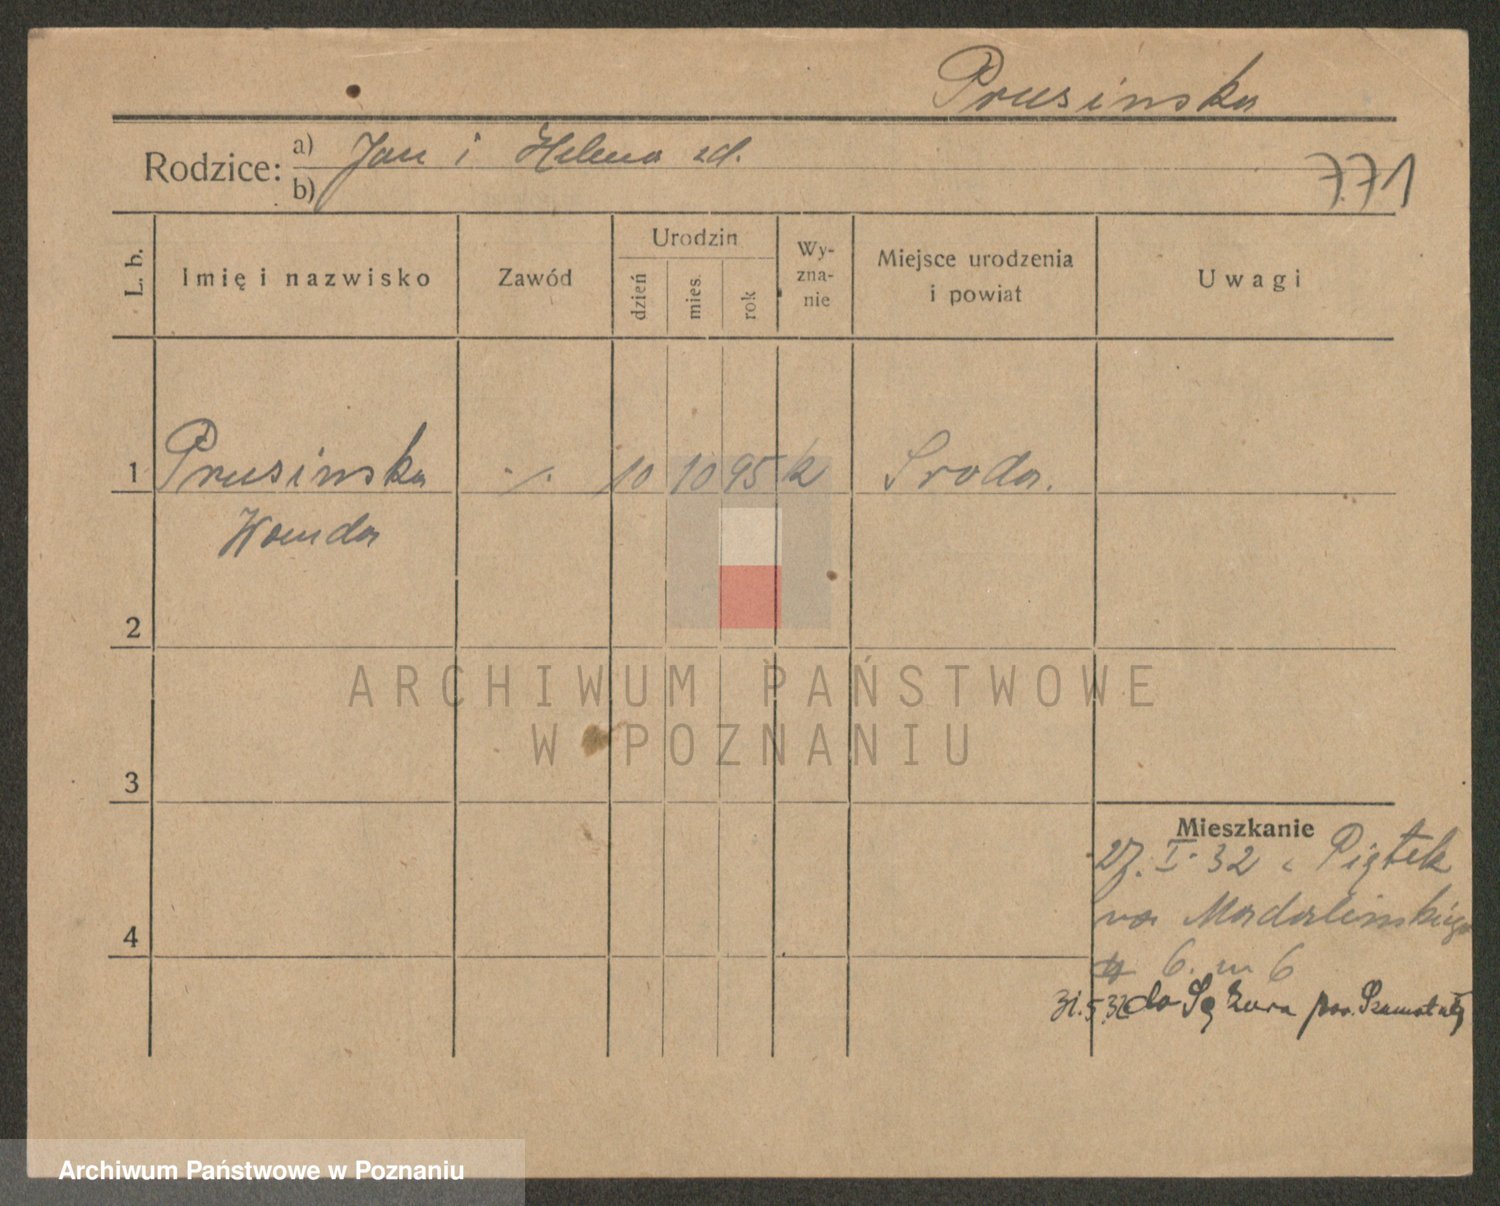 Prusinska
Rodzice: a) Jan i Helena zd.
b)
771
L. b.
Imię i nazwisko
Zawód
Urodzin
dzień
mies.
rok
Wy-
zna-
nie
Miejsce urodzenia
i powiat
Uwagi
1 Prusinska ·/. 10 10 95 k Sroda.
Wanda
2
3
4
Mieszkanie
27. I. 32 Piątek
na Madalinskiego
6. m 6
31.5.32 do pow. Szamotuły
ARCHIWUM PAŃSTWOWE
W POZNANIU
Archiwum Państwowe w Poznaniu